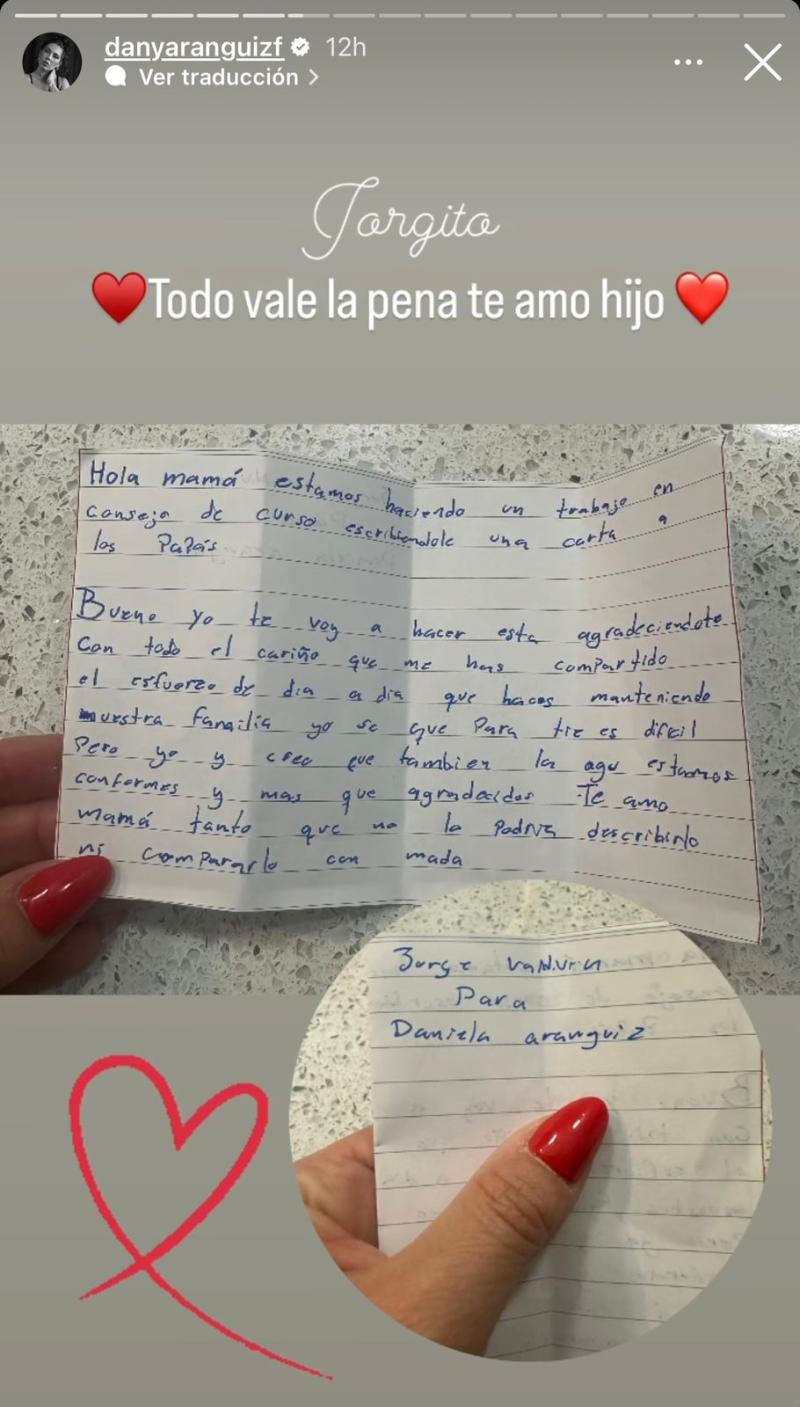 danyaranguizf 12h
Ver traducción >
Jorgito
♥️Todo vale la pena te amo hijo ❤️
Hola mamá estamos haciendo un trabajo en
consejo de curso escribiendole una carta a
los Papás
Bueno yo te voy a hacer esta agradeciendote
con todo el cariño que me has compartido
el esfuerzo de dia a dia que haces manteniendo
nuestra familia yo se que para tiz es dificil
Pero yo y creo que tambien la agu estamos
conformes y mas que agradecidos Te amo
mamá tanto que no lo podria describirlo
ni compararlo con nada
Jorge valdivia
Para
Daniela aranguiz